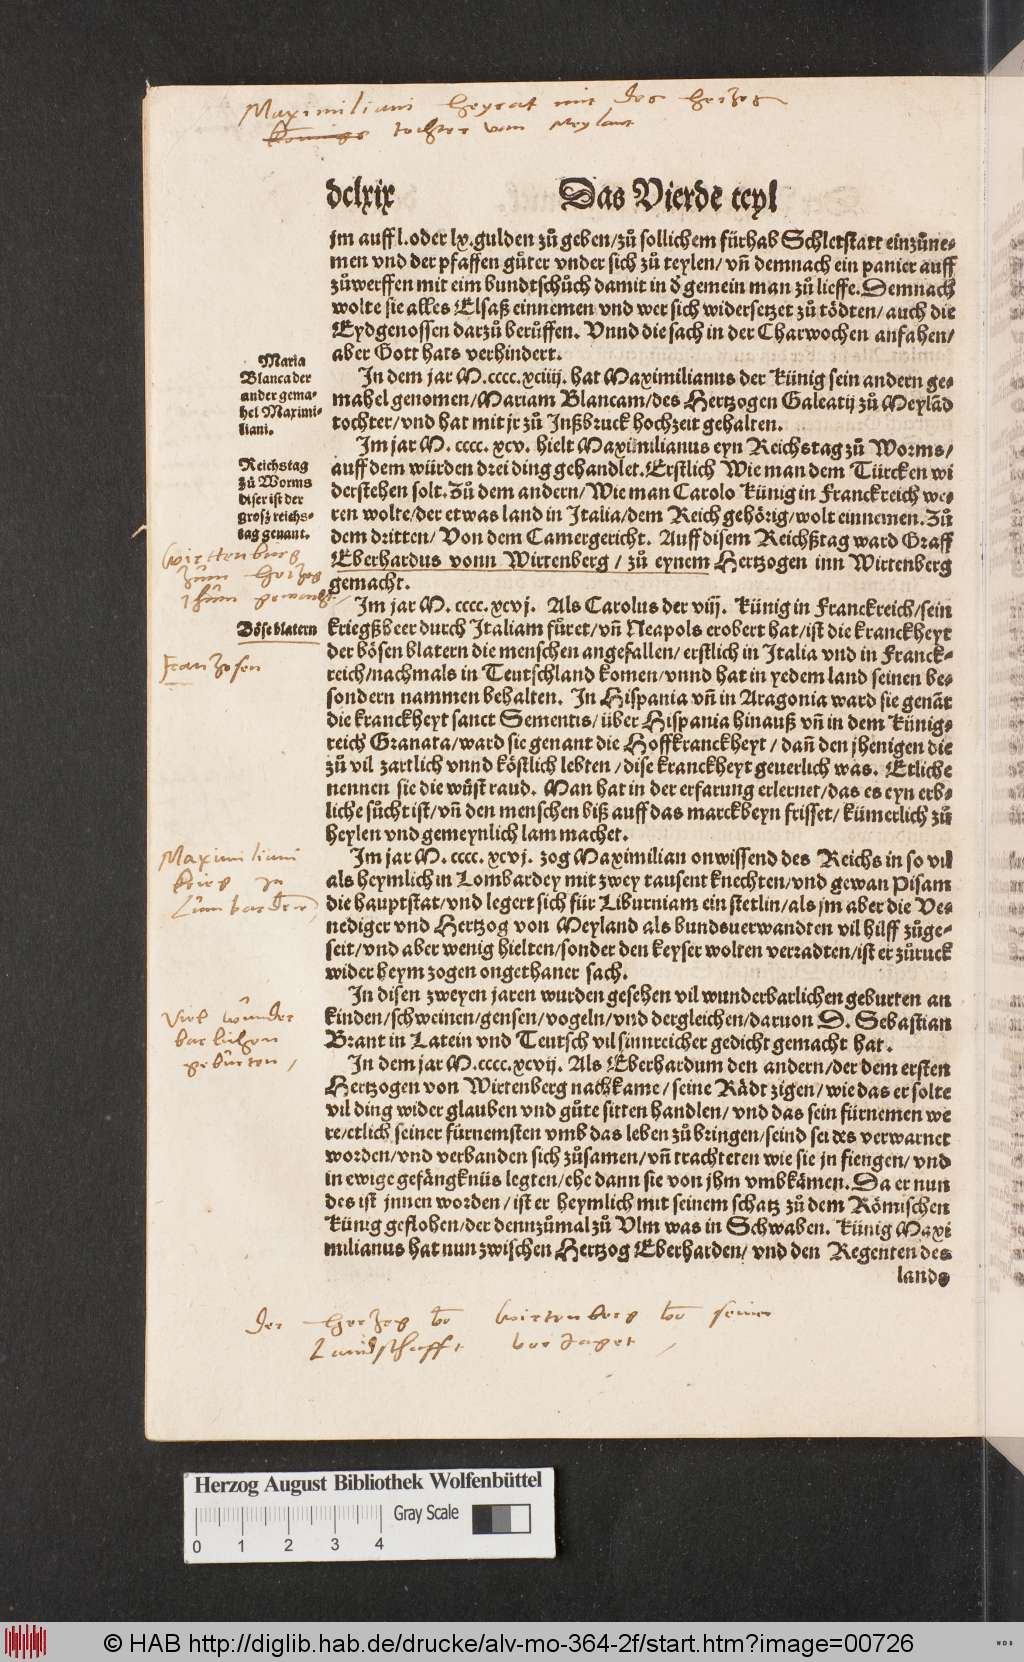 Maximiliani heyrat mit des hertzogs
Konings tochter vom Meylant
dclxix
Das Vierde teyl
jm auff l. oder lx. gulden zů geben/zů sollichem fürhab Schletstatt einzůne-
men vnd der pfaffen gůter vnder sich zů teylen/ vñ demnach ein panier auff
zůwerffen mit eim bundtschůch damit in đ gemein man zů lieffe. Demnach
wolte sie alles Elsaß einnemen vnd wer sich widersetzet zů tödten/ auch die
Eydgenossen darzů berůffen. Vnnd die sach in der Charwochen anfahen/
aber Gott hats verhindert.
Maria
Blanca der
ander gema-
hel Maximi-
liani.
In dem jar M.cccc.xciiij. hat Maximilianus der Künig sein andern ge-
mahel genomen/Mariam Blancam/des Hertzogen Galeatij zů Meylãd
tochter/vnd hat mit jr zů Jnßbruck hochzeit gehalten.
Reichstag
zů Worms
diser ist der
grosz reichs-
tag genant.
Im jar M. cccc. xcv. hielt Maximilianus eyn Reichstag zů Worms/
auff dem würden drei ding gehandlet. Erstlich Wie man dem Türcken wi
derstehen solt. Zů dem andern/Wie man Carolo Künig in Franckreich we-
ren wolte/der etwas land in Italia/dem Reich gehörig/wolt einnemen. Zů
dem dritten/ Von dem Camergericht. Auff disem Reichßtag ward Graff
Eberhardus vonn Wirtenberg / zů eynem Hertzogen inn Wirtenberg
gemacht.
Wirttenburg
zum hertzog
thum gemacht
Böse blatern
Frantzosen
Im jar M. cccc. xcvj. Als Carolus der viij. Künig in Franckreich/sein
kriegßheer durch Italiam fůret/vñ Neapols erobert hat/ist die kranckheyt
der bösen blatern die menschen angefallen/ erstlich in Italia vnd in Franck-
reich/nachmals in Teutschland komen/vnnd hat in yedem land seinen be-
sondern nammen behalten. In Hispania vñ in Aragonia ward sie genãt
die kranckheyt sanct Sementis/ über Hispania hinauß vñ in dem Künig-
reich Granata/ward sie genant die Hoffkranckheyt / dañ den jhenigen die
zů vil zartlich vnnd köstlich lebten / dise kranckheyt geuerlich was. Etliche
nennen sie die wůst raud. Man hat in der erfarung erlernet/das es eyn erb-
liche sücht ist/vñ den menschen biß auff das marckbeyn frisset/ kümerlich zů
heylen vnd gemeynlich lam machet.
Maximiliani
krieg in
Lumbardeie
Im jar M. cccc. xcvj. zog Maximilian onwissend des Reichs in so vil
als heymlich in Lombardey mit zwey tausent knechten/vnd gewan Pisam
die hauptstat/vnd legert sich für Liburniam ein stetlin/als jm aber die Ve-
nediger vnd Hertzog von Meyland als bundsuerwandten vil hilff zůge-
seit/vnd aber wenig hielten/sonder den keyser wolten verradten/ist er zůruck
wider heym zogen ongethaner sach.
Viel wunder
barlichen
geburten,
In disen zweyen jaren wurden gesehen vil wunderbarlichen geburten an
kinden/schweinen/gensen/vogeln/vnd dergleichen/daruon D. Sebastian
Brant in Latein vnd Teutsch vil sinnreicher gedicht gemacht hat.
In dem jar M.cccc.xcvij. Als Eberhardum den andern/der dem ersten
Hertzogen von Wirtenberg nachkame/ seine Rådt zigen/ wie das er solte
vil ding wider glauben vnd gůte sitten handlen/ vnd das sein fürnemen we
re/etlich seiner fürnemsten vmb das leben zů bringen/seind sei des verwarnet
worden/vnd verbanden sich zůsamen/vñ trachteten wie sie jn fiengen/ vnd
in ewige gefångknüs legten/ehe dann sie von jhm vmbkåmen. Da er nun
des ist jnnen worden / ist er heymlich mit seinem schatz zů dem Römischen
Künig geflohen/der dennzůmal zů Vlm was in Schwaben. Künig Maxi
milianus hat nun zwischen Hertzog Eberharden/ vnd den Regenten des
lands
Der hertzog võ Wirtenberg võ seiner
Landschafft veriaget
Herzog August Bibliothek Wolfenbüttel
Gray Scale
0 1 2 3 4
© HAB http://diglib.hab.de/drucke/alv-mo-364-2f/start.htm?image=00726